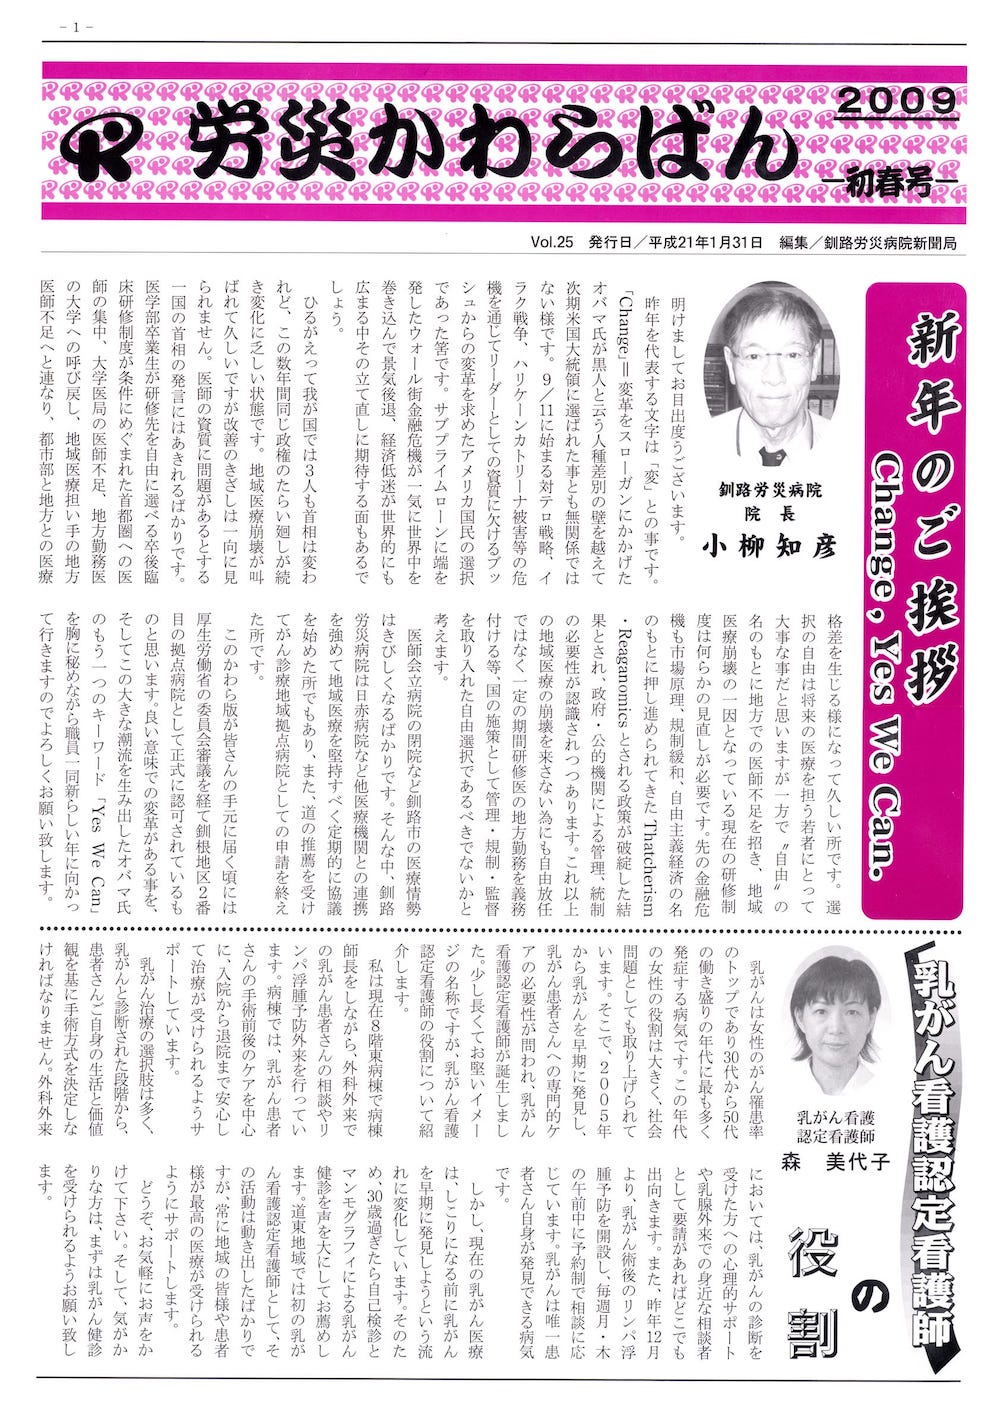 - 1 -
労災かわらばん
2009
―初春号―
Vol.25 発行日／平成21年1月31日 編集／釧路労災病院新聞局
新年のご挨拶
Change, Yes We Can.
釧路労災病院
院 長
小柳知彦
明けましてお目出度うございます。
昨年を代表する文字は「変」との事です。
「Change」＝変革をスローガンにかかげた
オバマ氏が黒人と云う人種差別の壁を越えて
次期米国大統領に選ばれた事とも無関係では
ない様です。９／11に始まる対テロ戦略、イ
ラク戦争、ハリケーンカトリーナ被害等の危
機を通じてリーダーとしての資質に欠けるブッ
シュからの変革を求めたアメリカ国民の選択
であった筈です。サブプライムローンに端を
発したウォール街金融危機が一気に世界中を
巻き込んで景気後退、経済低迷が世界的にも
広まる中その立て直しに期待する面もあるで
しょう。
ひるがえって我が国では３人も首相は変わ
れど、この数年間同じ政権のたらい廻しが続
き変化に乏しい状態です。地域医療崩壊が叫
ばれて久しいですが改善のきざしは一向に見
られません。医師の資質に問題があるとする
一国の首相の発言にはあきれるばかりです。
医学部卒業生が研修先を自由に選べる卒後臨
床研修制度が条件にめぐまれた首都圏への医
師の集中、大学医局の医師不足、地方勤務医
の大学への呼び戻し、地域医療担い手の地方
医師不足へと連なり、都市部と地方との医療
格差を生じる様になって久しい所です。選
択の自由は将来の医療を担う若者にとって
大事な事だと思いますが一方で〝自由〟の
名のもとに地方での医師不足を招き、地域
医療崩壊の一因となっている現在の研修制
度は何らかの見直しが必要です。先の金融危
機も市場原理、規制緩和、自由主義経済の名
のもとに押し進められてきたThatcherism
・Reaganomicsとされる政策が破綻した結
果とされ、政府・公的機関による管理、統制
の必要性が認識されつつあります。これ以上
の地域医療の崩壊を来さない為にも自由放任
ではなく一定の期間研修医の地方勤務を義務
付ける等、国の施策として管理・規制・監督
を取り入れた自由選択であるべきでないかと
考えます。
医師会立病院の閉院など釧路市の医療情勢
はきびしくなるばかりです。そんな中、釧路
労災病院は日赤病院など他医療機関との連携
を強めて地域医療を堅持すべく定期的に協議
を始めた所でもあり、また、道の推薦を受け
てがん診療地域拠点病院としての申請を終え
た所です。
このかわら版が皆さんの手元に届く頃には
厚生労働省の委員会審議を経て釧根地区２番
目の拠点病院として正式に認可されているも
のと思います。良い意味での変革がある事を、
そしてこの大きな潮流を生み出したオバマ氏
のもう一つのキーワード「Yes We Can」
を胸に秘めながら職員一同新らしい年に向かっ
て行きますのでよろしくお願い致します。
乳がん看護認定看護師
の
役割
乳がん看護
認定看護師
森 美代子
乳がんは女性のがん罹患率
のトップであり30代から50代
の働き盛りの年代に最も多く
発症する病気です。この年代
の女性の役割は大きく、社会
問題としても取り上げられて
います。そこで、２００５年
から乳がんを早期に発見し、
乳がん患者さんへの専門的ケ
アの必要性が問われ、乳がん
看護認定看護師が誕生しまし
た。少し長くてお堅いイメー
ジの名称ですが、乳がん看護
認定看護師の役割について紹
介します。
私は現在８階東病棟で病棟
師長をしながら、外科外来で
の乳がん患者さんの相談やリ
ンパ浮腫予防外来を行ってい
ます。病棟では、乳がん患者
さんの手術前後のケアを中心
に、入院から退院まで安心し
て治療が受けられるようサ
ポートしています。
乳がん治療の選択肢は多く、
乳がんと診断された段階から、
患者さんご自身の生活と価値
観を基に手術方式を決定しな
ければなりません。外科外来
においては、乳がんの診断を
受けた方への心理的サポート
や乳腺外来での身近な相談者
として要請があればどこでも
出向きます。また、昨年12月
より、乳がん術後のリンパ浮
腫予防を開設し、毎週月・木
の午前中に予約制で相談に応
じています。乳がんは唯一患
者さん自身が発見できる病気
です。
しかし、現在の乳がん医療
は、しこりになる前に乳がん
を早期に発見しようという流
れに変化しています。そのた
め、30歳過ぎたら自己検診と
マンモグラフィによる乳がん
健診を声を大にしてお薦めし
ます。道東地域では初の乳が
ん看護認定看護師として、そ
の活動は動き出したばかりで
すが、常に地域の皆様や患者
様が最高の医療が受けられる
ようにサポートします。
どうぞ、お気軽にお声をか
けて下さい。そして、気がか
りな方は、まずは乳がん健診
を受けられるようお願い致し
ます。